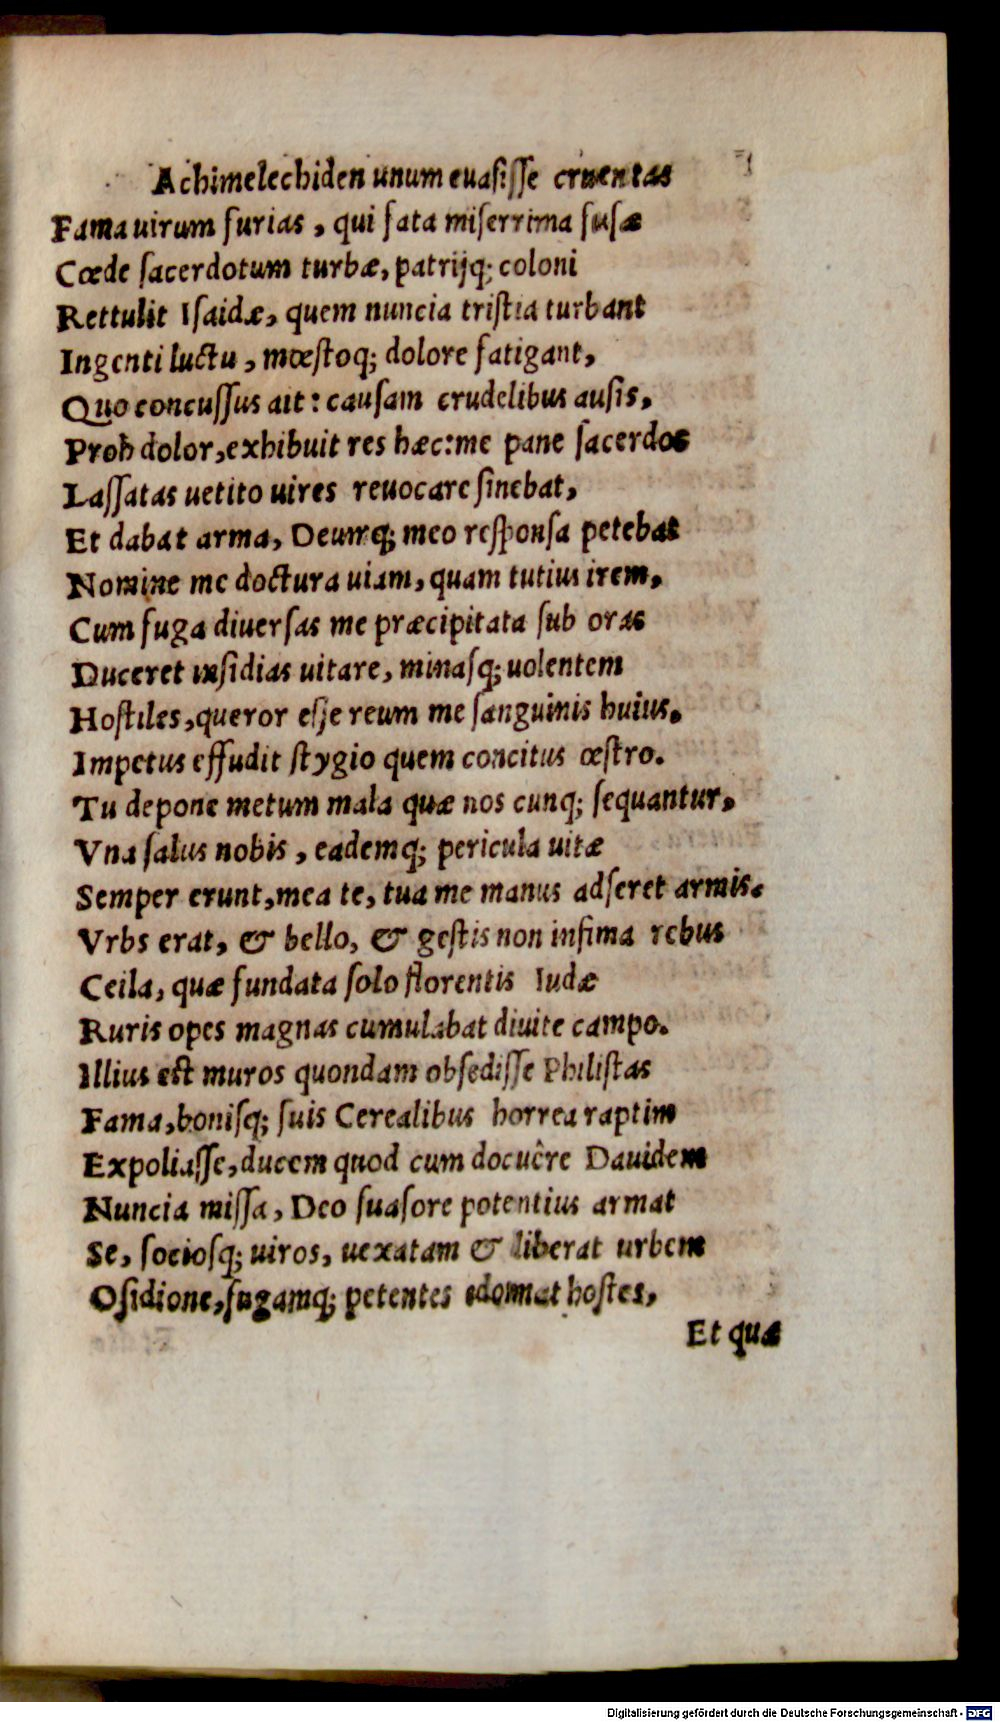 Achimelechiden unum euasiſſe cruentas
Fama uirum furias, qui fata miſerrima fuſæ
Cœde ſacerdotum turbæ, patrijq; coloni
Rettulit Iſaidæ, quem nuncia triſtia turbant
Ingenti luctu, mœſtoq; dolore fatigant,
Quo concuſſus ait: cauſam crudelibus auſis,
Proh dolor, exhibuit res hæc: me pane ſacerdos
Laſſatas uetito uires reuocare ſinebat,
Et dabat arma, Deumq; meo reſponſa petebat
Nomine me doctura uiam, quam tutius irem,
Cum fuga diuerſas me præcipitata ſub oras
Duceret inſidias uitare, minaſq; uolentem
Hoſtiles, queror eſſe reum me ſanguinis huius.
Impetus effudit ſtygio quem concitus œſtro.
Tu depone metum mala quæ nos cunq; ſequantur,
Vna ſalus nobis, eademq; pericula uitæ
Semper erunt, mea te, tua me manus adſeret armis.
Vrbs erat, & bello, & geſtis non infima rebus
Ceila, quæ fundata ſolo florentis Iudæ
Ruris opes magnas cumulabat diuite campo.
Illius est muros quondam obſediſſe Philiſtas
Fama, boniſq; ſuis Cerealibus horrea raptim
Expoliaſſe, ducem quod cum docuêre Dauidem
Nuncia miſſa, Deo ſuaſore potentius armat
Se, ſocioſq; uiros, uexatam & liberat urbem
Oſidione, fugamq; petentes edomat hoſtes,
Et quæ
Digitalisierung gefördert durch die Deutsche Forschungsgemeinschaft - DFG